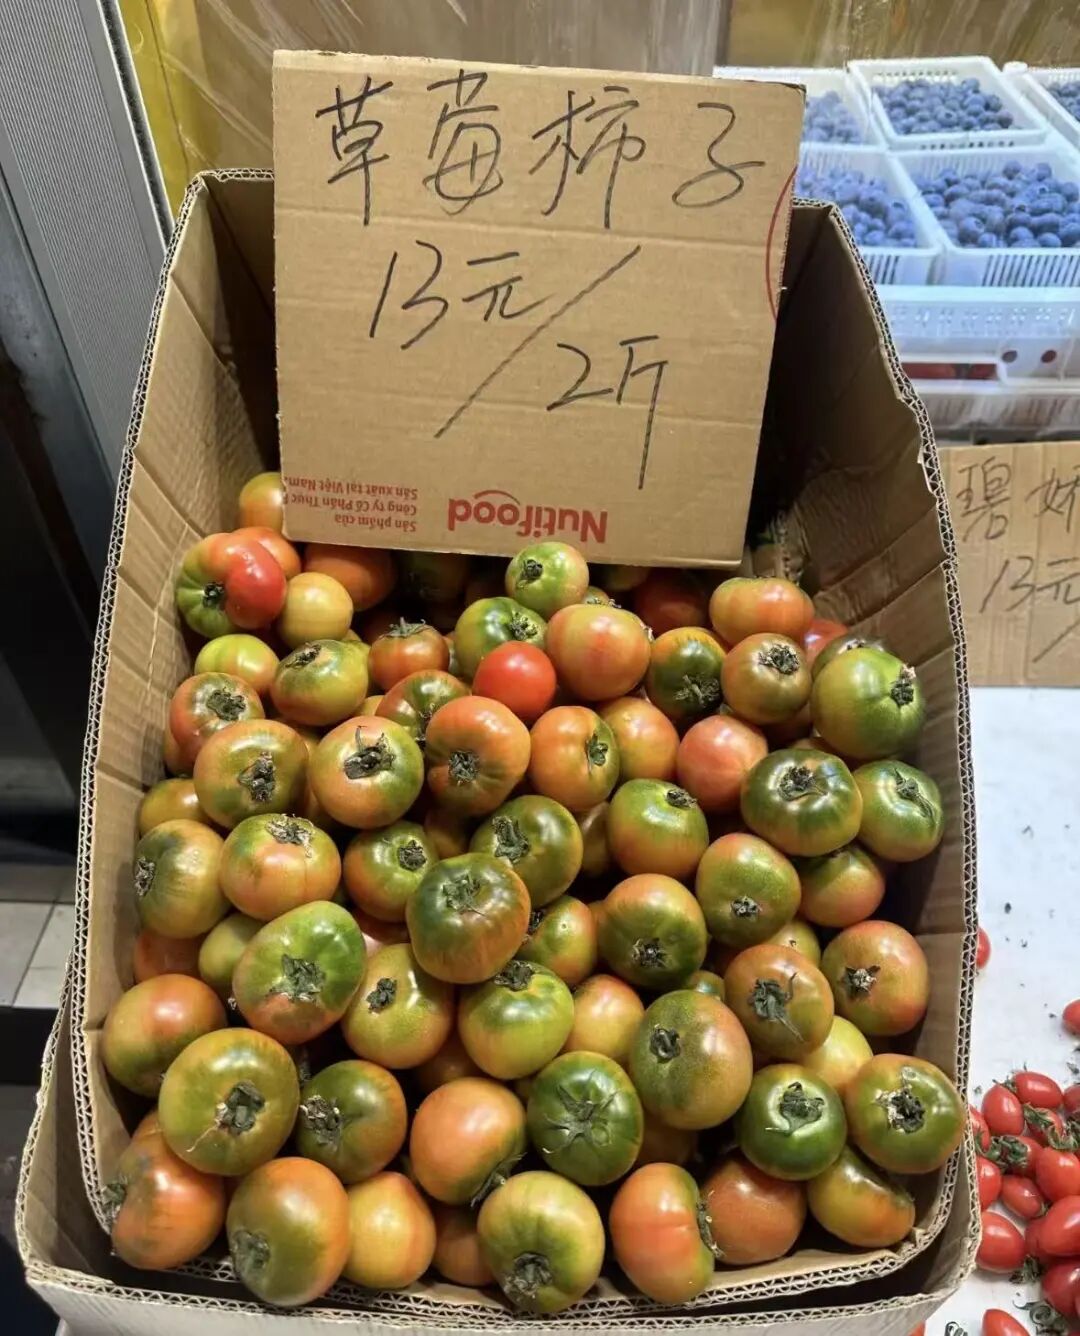 草莓柿子
13元/2斤
Nutifood
Sản phẩm của
Công ty Cổ Phần Thực
Sản xuất tại Việt Nam.
碧娇
13元/